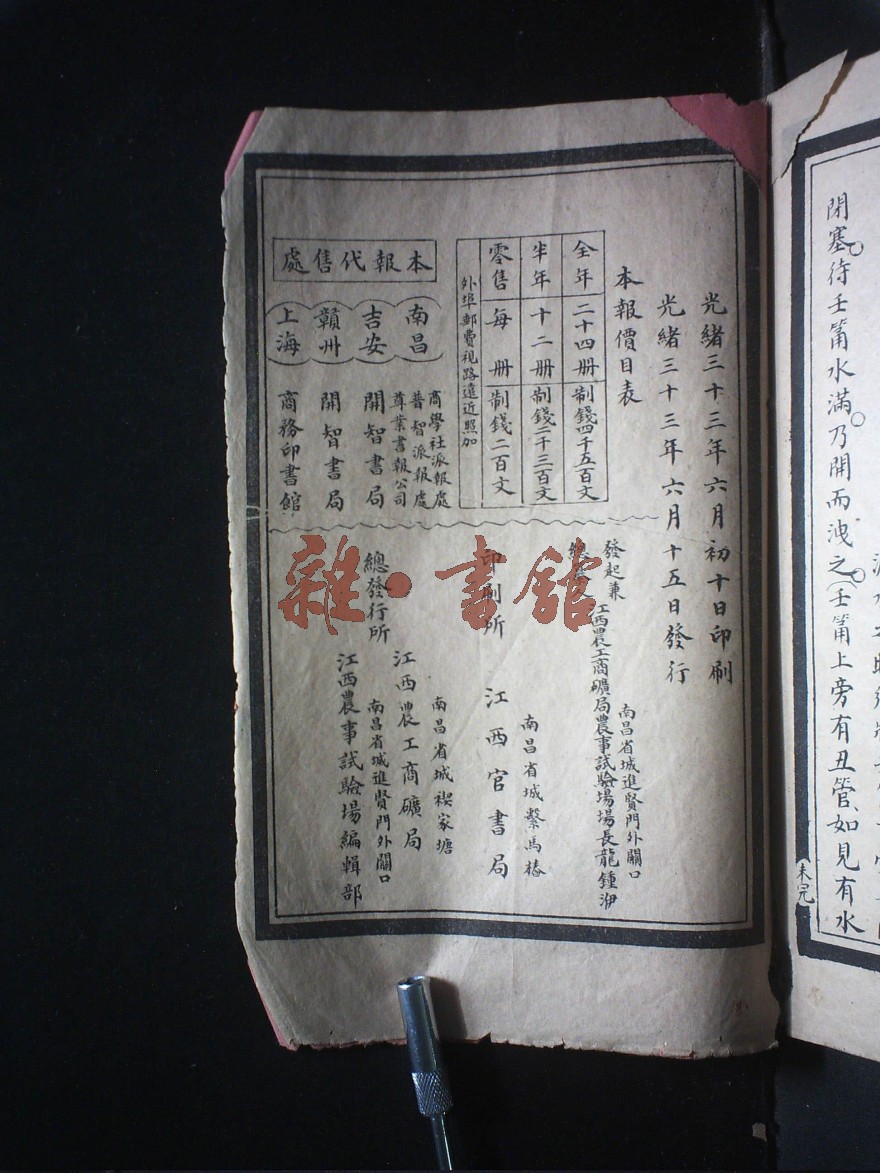 閉塞、待壬筩水滿、乃開而洩之、(壬筩上旁有丑管、如見有水
未完
光緒三十三年六月初十日印刷
光緒三十三年六月十五日發行
本報價目表
全年 二十四册 制錢四千五百文
半年 十二册 制錢二千三百文
零售 每册 制錢二百文
外埠郵費視路遠近照加
本報代售處
南昌 商學社派報處
普智派報處
尊業書報公司
吉安 開智書局
贛州 開智書局
上海 商務印書館
發起兼
總
南昌省城進賢門外關口
江西農工商礦局農事試驗場場長龍鍾洢
印刷所
南昌省城繫馬樁
江西官書局
總發行所
南昌省城禊家塘
江西農工商礦局
南昌省城進賢門外關口
江西農事試驗場編輯部
雜·書館